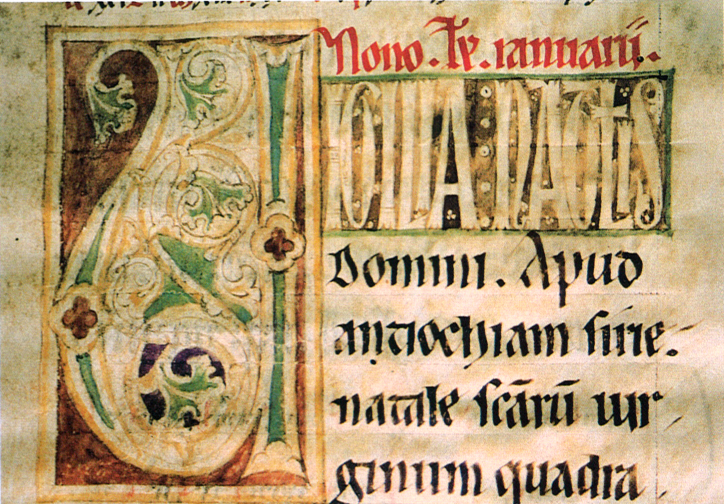 Nono. kł. ianuarii.
VIGILIA NATALIS
Domini. Apud
antiochiam sirie.
natale scārū uir
ginum quadra